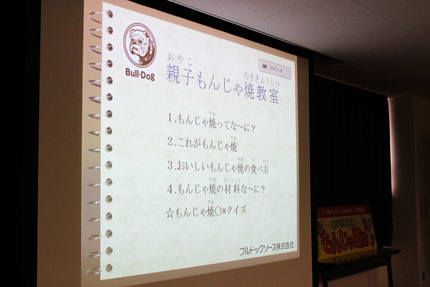 Bull-Dog
おやこ やききょうしつ
親子もんじゃ焼教室
1.もんじゃ焼ってな〜に?
2.これがもんじゃ焼
3.おいしいもんじゃ焼の食べ方
4.もんじゃ焼の材料な〜に?
☆もんじゃ焼○×クイズ
ブルドックソース株式会社
もんじゃ